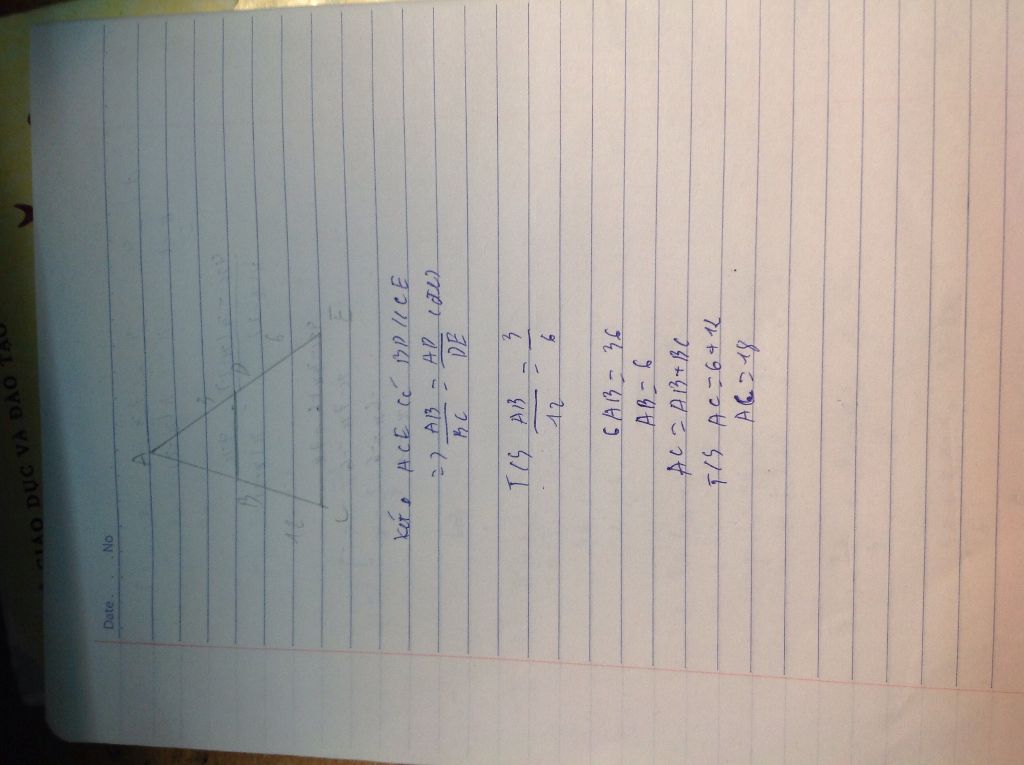 GIÁO DỤC VÀ ĐÀO TẠO
Date. . . . .No
A
3
B D
12 6
C E
Xét Δ ACE có BD // CE
=> AB/BC = AD/DE (đlí)
T/S AB/12 = 3/6
6AB = 36
AB = 6
AC = AB + BC
T/S AC = 6 + 12
AC = 18